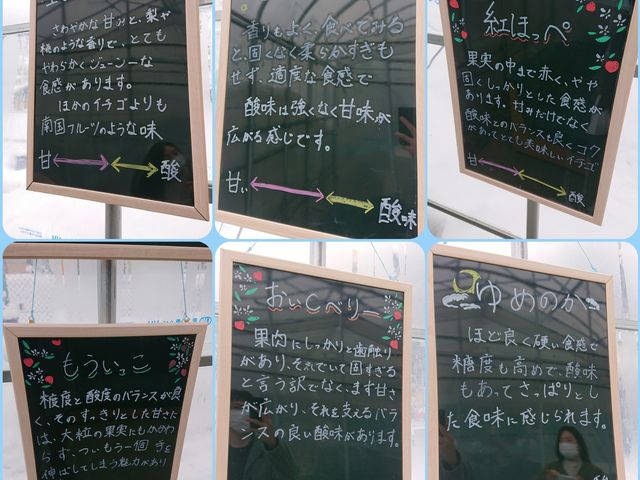 さわやかな甘みと、梨や
桃のような香りで、とても
やわらかくジューシーな
食感があります。
ほかのイチゴよりも
南国フルーツのような味
甘
酸
香りもよく、食べてみる
と、固くなく柔らかすぎも
せず、適度な食感で
酸味は強くなく甘味が
広がる感じです。
甘い
酸味
紅ほっぺ
果実の中まで赤く、やや
固くしっかりとした食感が
あります。甘みだけでなく
酸味とのバランスも良くコク
があってとても美味しいイチゴ
甘
酸
もういっこ
糖度と酸度のバランスが良
く、そのすっきりとした甘さに
は、大粒の果実にもかかわ
らず、ついもう一個 手を
伸ばしてしまう魅力があり
おいCベリー
果肉にしっかりと歯触り
があり、それでいて固すぎる
と言う訳でなく、まず甘さ
が広がり、それを支えるバラ
ンスの良い酸味があります。
ゆめのか
ほど良く硬い食感で
糖度も高めで、酸味
もあってさっぱりとし
た食味に感じられます。